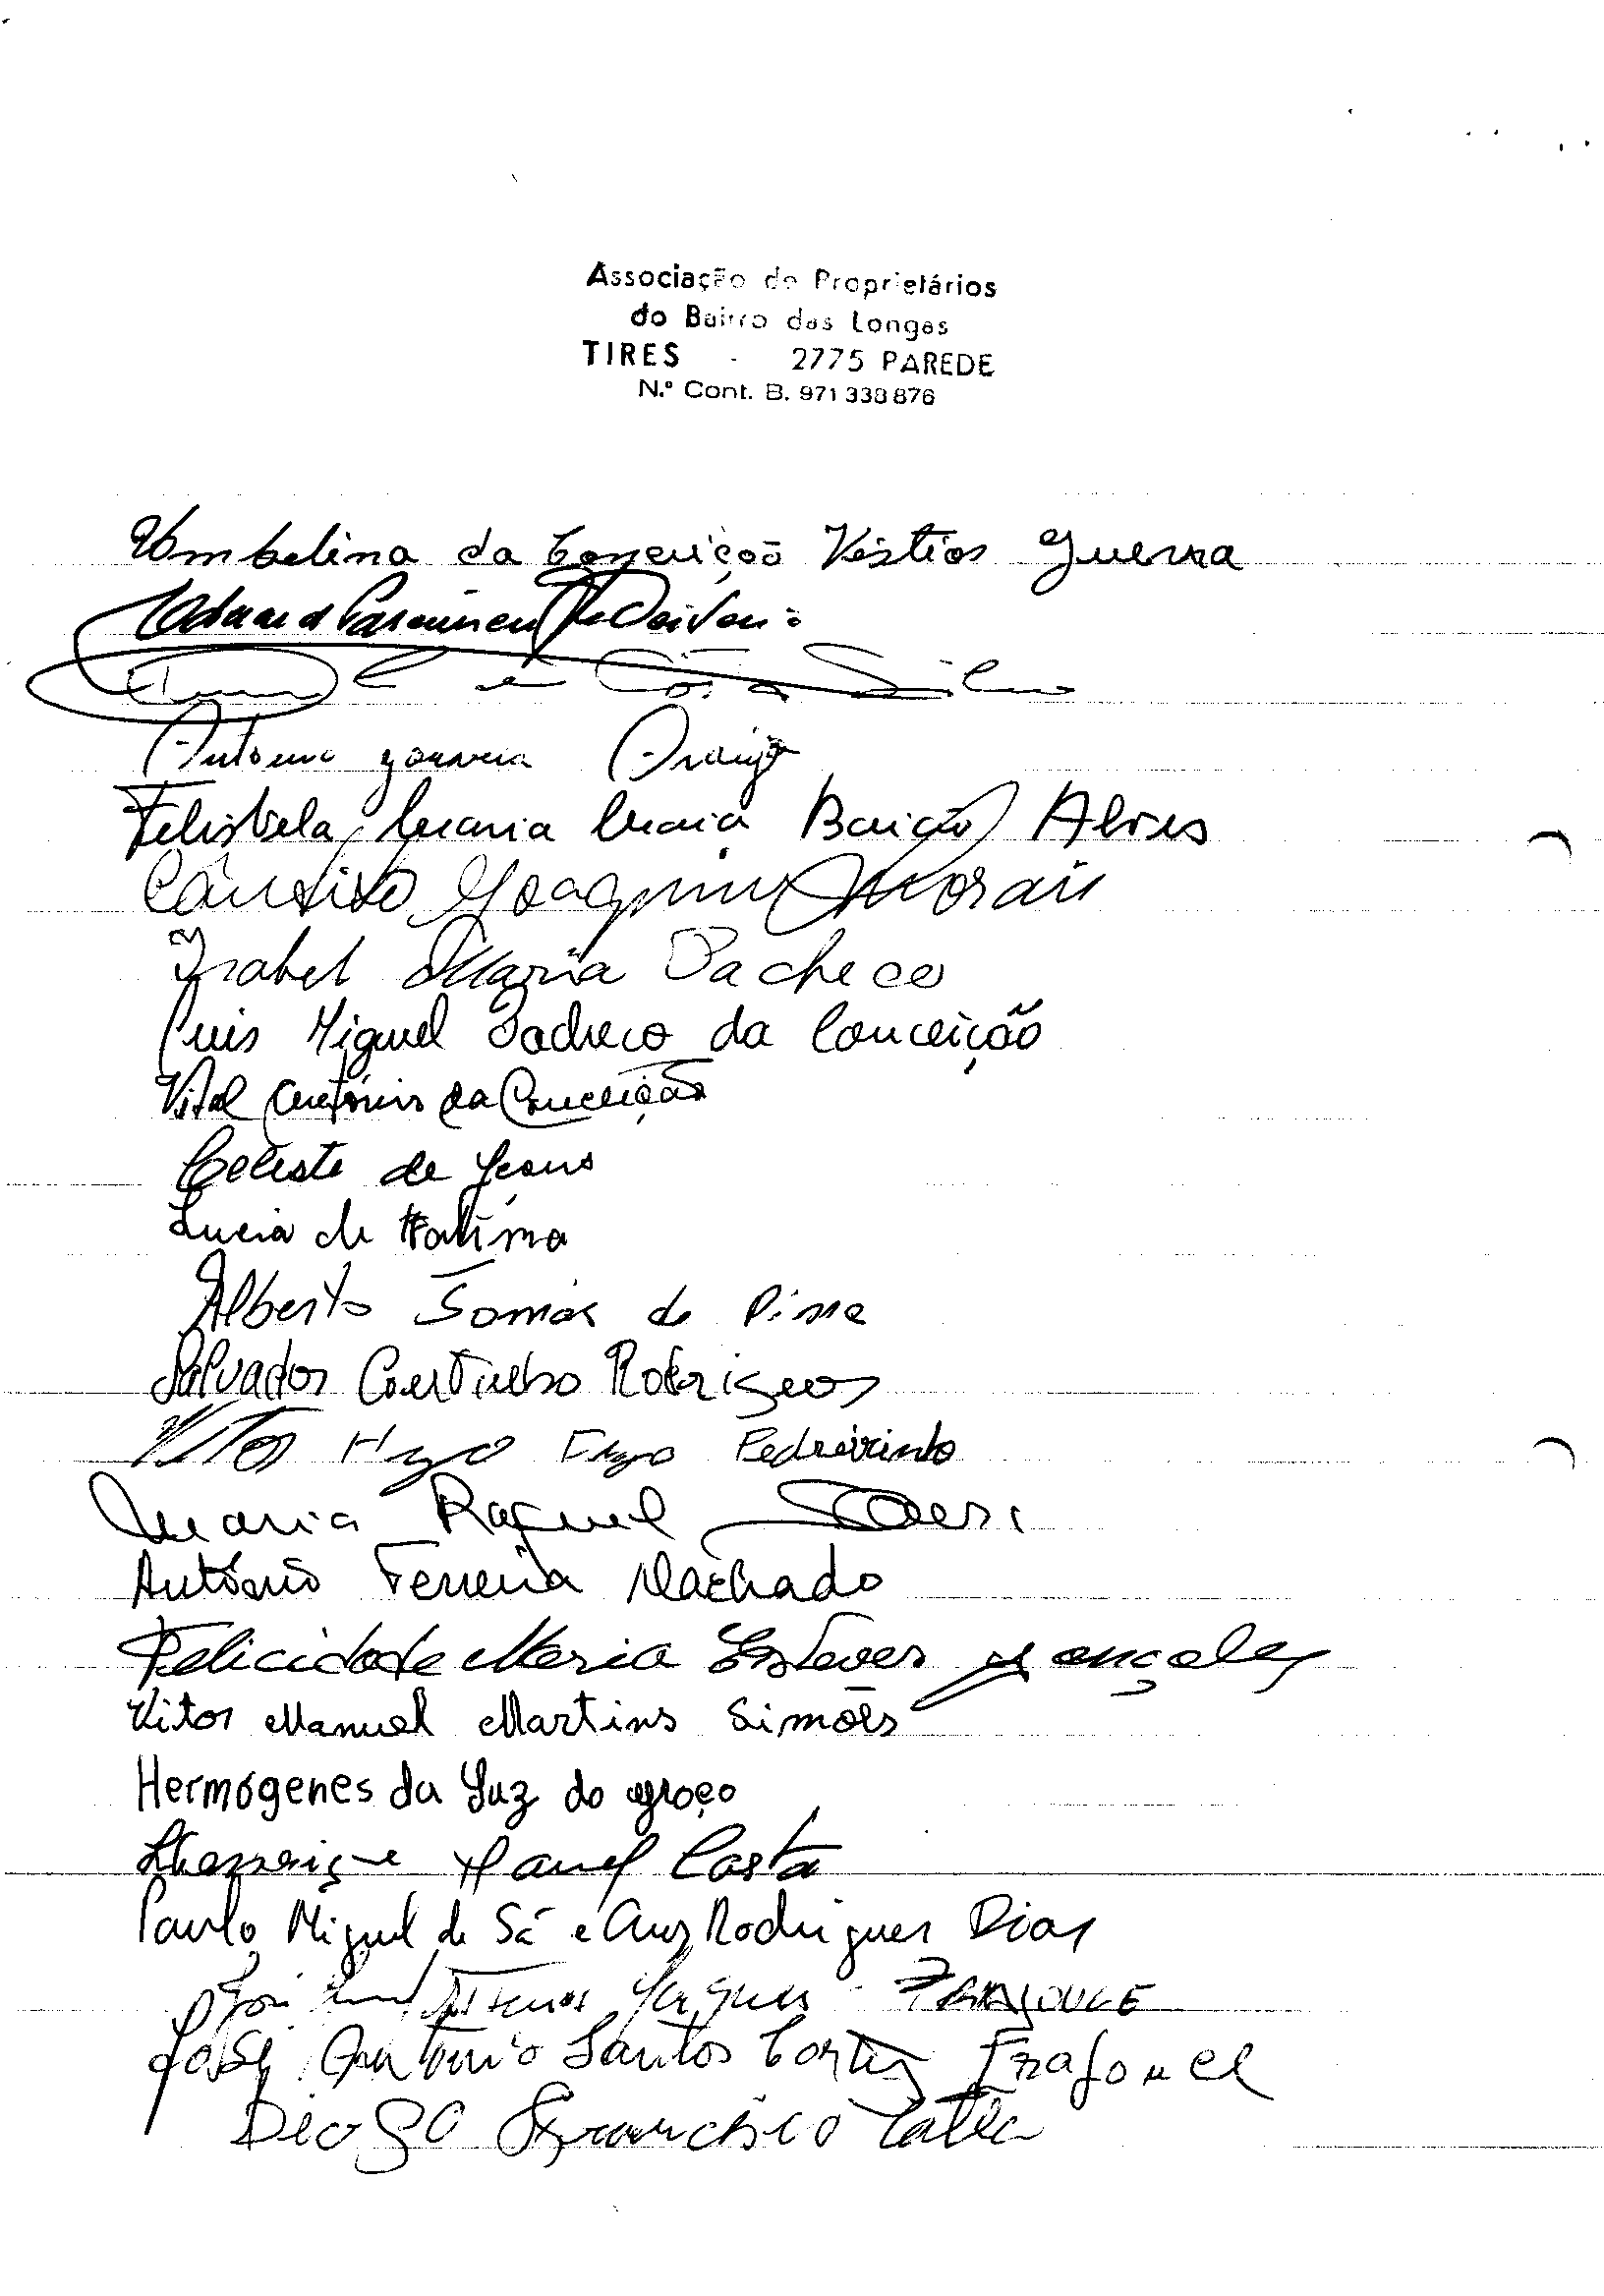 Associação de Proprietários
do Bairro das Longas
TIRES - 2775 PAREDE
N.º Cont. B. 971 338 876
Umbelina da Conceição Vistias Guerra
Silva
António Gouveia Araújo
Felisbela Maria Maia Baião Alves
Cândido Joaquim Morais
Isabel Maria Pacheco
Luis Miguel Pacheco da Conceição
Vital António da Conceição
Celeste de Jesus
Lucia de Fatima
Alberto Tomás de Pina
Salvador Rodrigues
Vitor Hugo Pedreirinho
Maria Raquel
António Ferreira Machado
Felicidade Maria Esteves Gonçalves
Vitor Manuel Martins Simões
Hermógenes da Luz do
Henrique Manuel Costa
Paulo Miguel de Sá e Cruz Rodrigues Dias
José
José António Santos Trajouce
Diogo Francisco